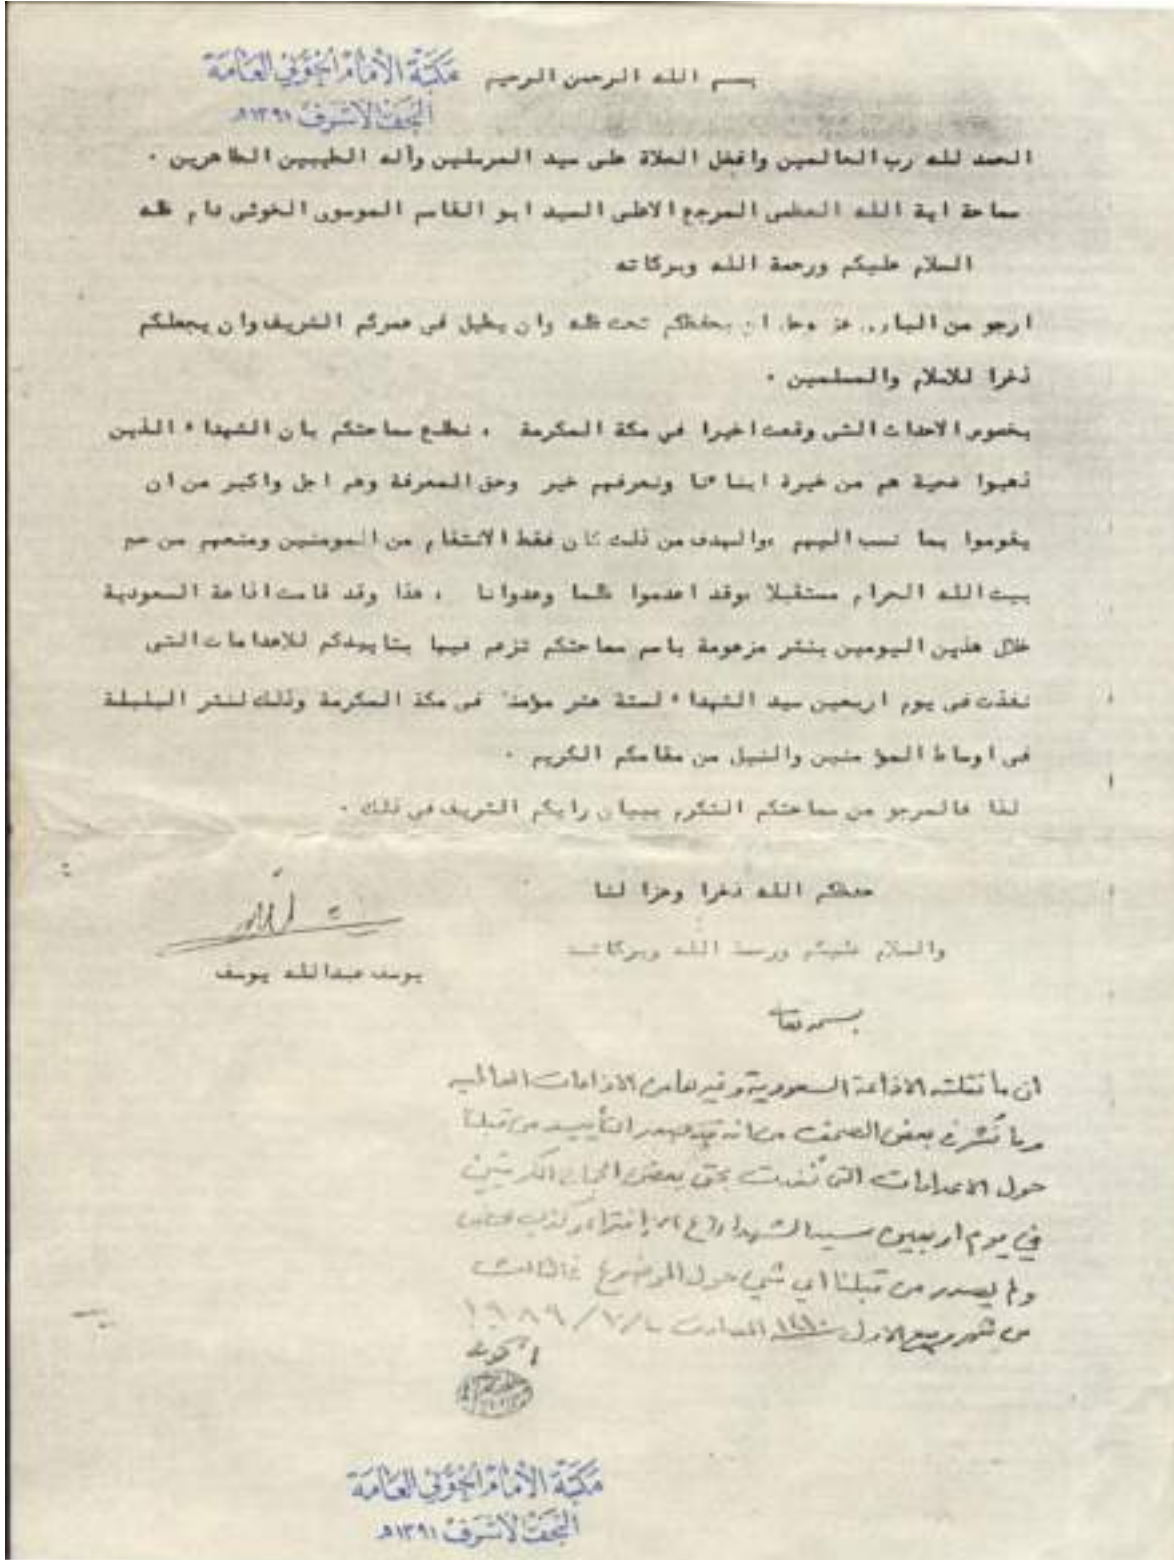 مكتبة الأمام الخوئي العامة
النجف الأشرف ١٣٩١هـ
بسم الله الرحمن الرحيم
الحمد لله رب العالمين وافضل الصلاة على سيد المرسلين وآله الطيبين الطاهرين .
سماحة اية الله العظمى المرجع الاعلى السيد ابو القاسم الموسوى الخوئى دام ظله
السلام عليكم ورحمة الله وبركاته
ارجو من البارى عز وجل ان يحفظكم تحت ظله وان يطيل فى عمركم الشريف وان يجعلكم
ذخرا للاسلام والمسلمين .
بخصوص الاحداث التى وقعت اخيرا فى مكة المكرمة . نطلع سماحتكم بان الشهداء الذين
ذهبوا ضحية هم من خيرة ابناءنا ونعرفهم خير وحق المعرفة وهم اجل واكبر من ان
يقوموا بما نسب اليهم ،والهدف من ذلك كان فقط الانتقام من المومنين ومنعهم من حج
بيت الله الحرام مستقبلا ،وقد اعدموا ظلما وعدوانا . هذا وقد قامت اذاعة السعودية
خلال هذين اليومين بنشر مزعومة باسم سماحتكم تزعم فيها بتاييدكم للاعدامات التى
نفذت فى يوم اربعين سيد الشهداء لستة عشر مؤمنا فى مكة المكرمة وذلك لنشر البلبلة
فى اوساط المؤمنين والنيل من مقامكم الكريم .
لذا فالمرجو من سماحتكم التكرم ببيان رايكم الشريف فى ذلك .
حفظكم الله ذخرا وعزا لنا
والسلام عليكم ورحمة الله وبركاته
يوسف عبدالله يوسف
بسمه تعالى
ان ما نقلته الاذاعة السعودية وغيرها من الاذاعات العالمية
وما نشرته بعض الصحف من انه قد صدر التأييد من قبلنا
حول الاعدامات التي نُفذت بحق بعض الحجاج الكويتيين
في يوم اربعين سيد الشهداء (ع) افتراء وكذب محض
ولم يصدر من قبلنا اي شي حول الموضوع في الثالث
من شهر ربيع الاول ١٤١٠ المصادف
الخوئي
مكتبة الأمام الخوئي العامة
النجف الأشرف ١٣٩١هـ